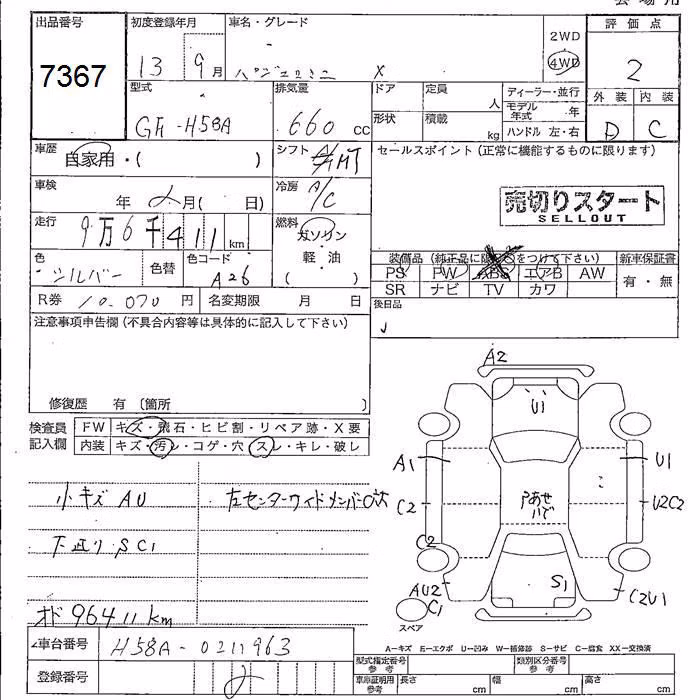 会場用
出品番号
7367
初度登録年月
13 9月
車名・グレード
パジェロミニ X
2WD
4WD
評価点
2
外装 内装
D C
型式
GH-H58A
排気量
660 cc
ドア 定員 人
形状 積載 kg
ディーラー・並行
モデル年式 年
ハンドル 左・右
車歴
自家用・( )
シフト
セールスポイント(正常に機能するものに限ります)
売切りスタート
SELLOUT
車検
年 月( 日)
冷房 A/C
走行
9万6千411km
燃料
ガソリン
・
軽油
( )
色
シルバー
色替
色コード
A26
装備品(純正品に限り○をつけて下さい)
PS PW ABS エアB AW
SR ナビ TV カワ
新車保証書
有・無
R券 10,070円
名変期限 月 日
後日品
注意事項申告欄(不具合内容等は具体的に記入して下さい)
修復歴 有(箇所 )
検査員記入欄
FW キズ・飛石・ヒビ割・リペア跡・X要
内装 キズ・汚レ・コゲ・穴・スレ・キレ・破レ
小キズ AU
下廻り SC1
オド 96411km
A2
U1
A1
U1
C2
U2C2
C2
S1
AU2
C1
C2U1
スペア
A-キズ E-エクボ U-凹み W-補修跡 S-サビ C-腐食 XX-交換済
車台番号
H58A-0211963
登録番号
型式指定番号 参考
類別区分番号 参考
車庫証明用 参考
長さ cm
幅 cm
高さ cm